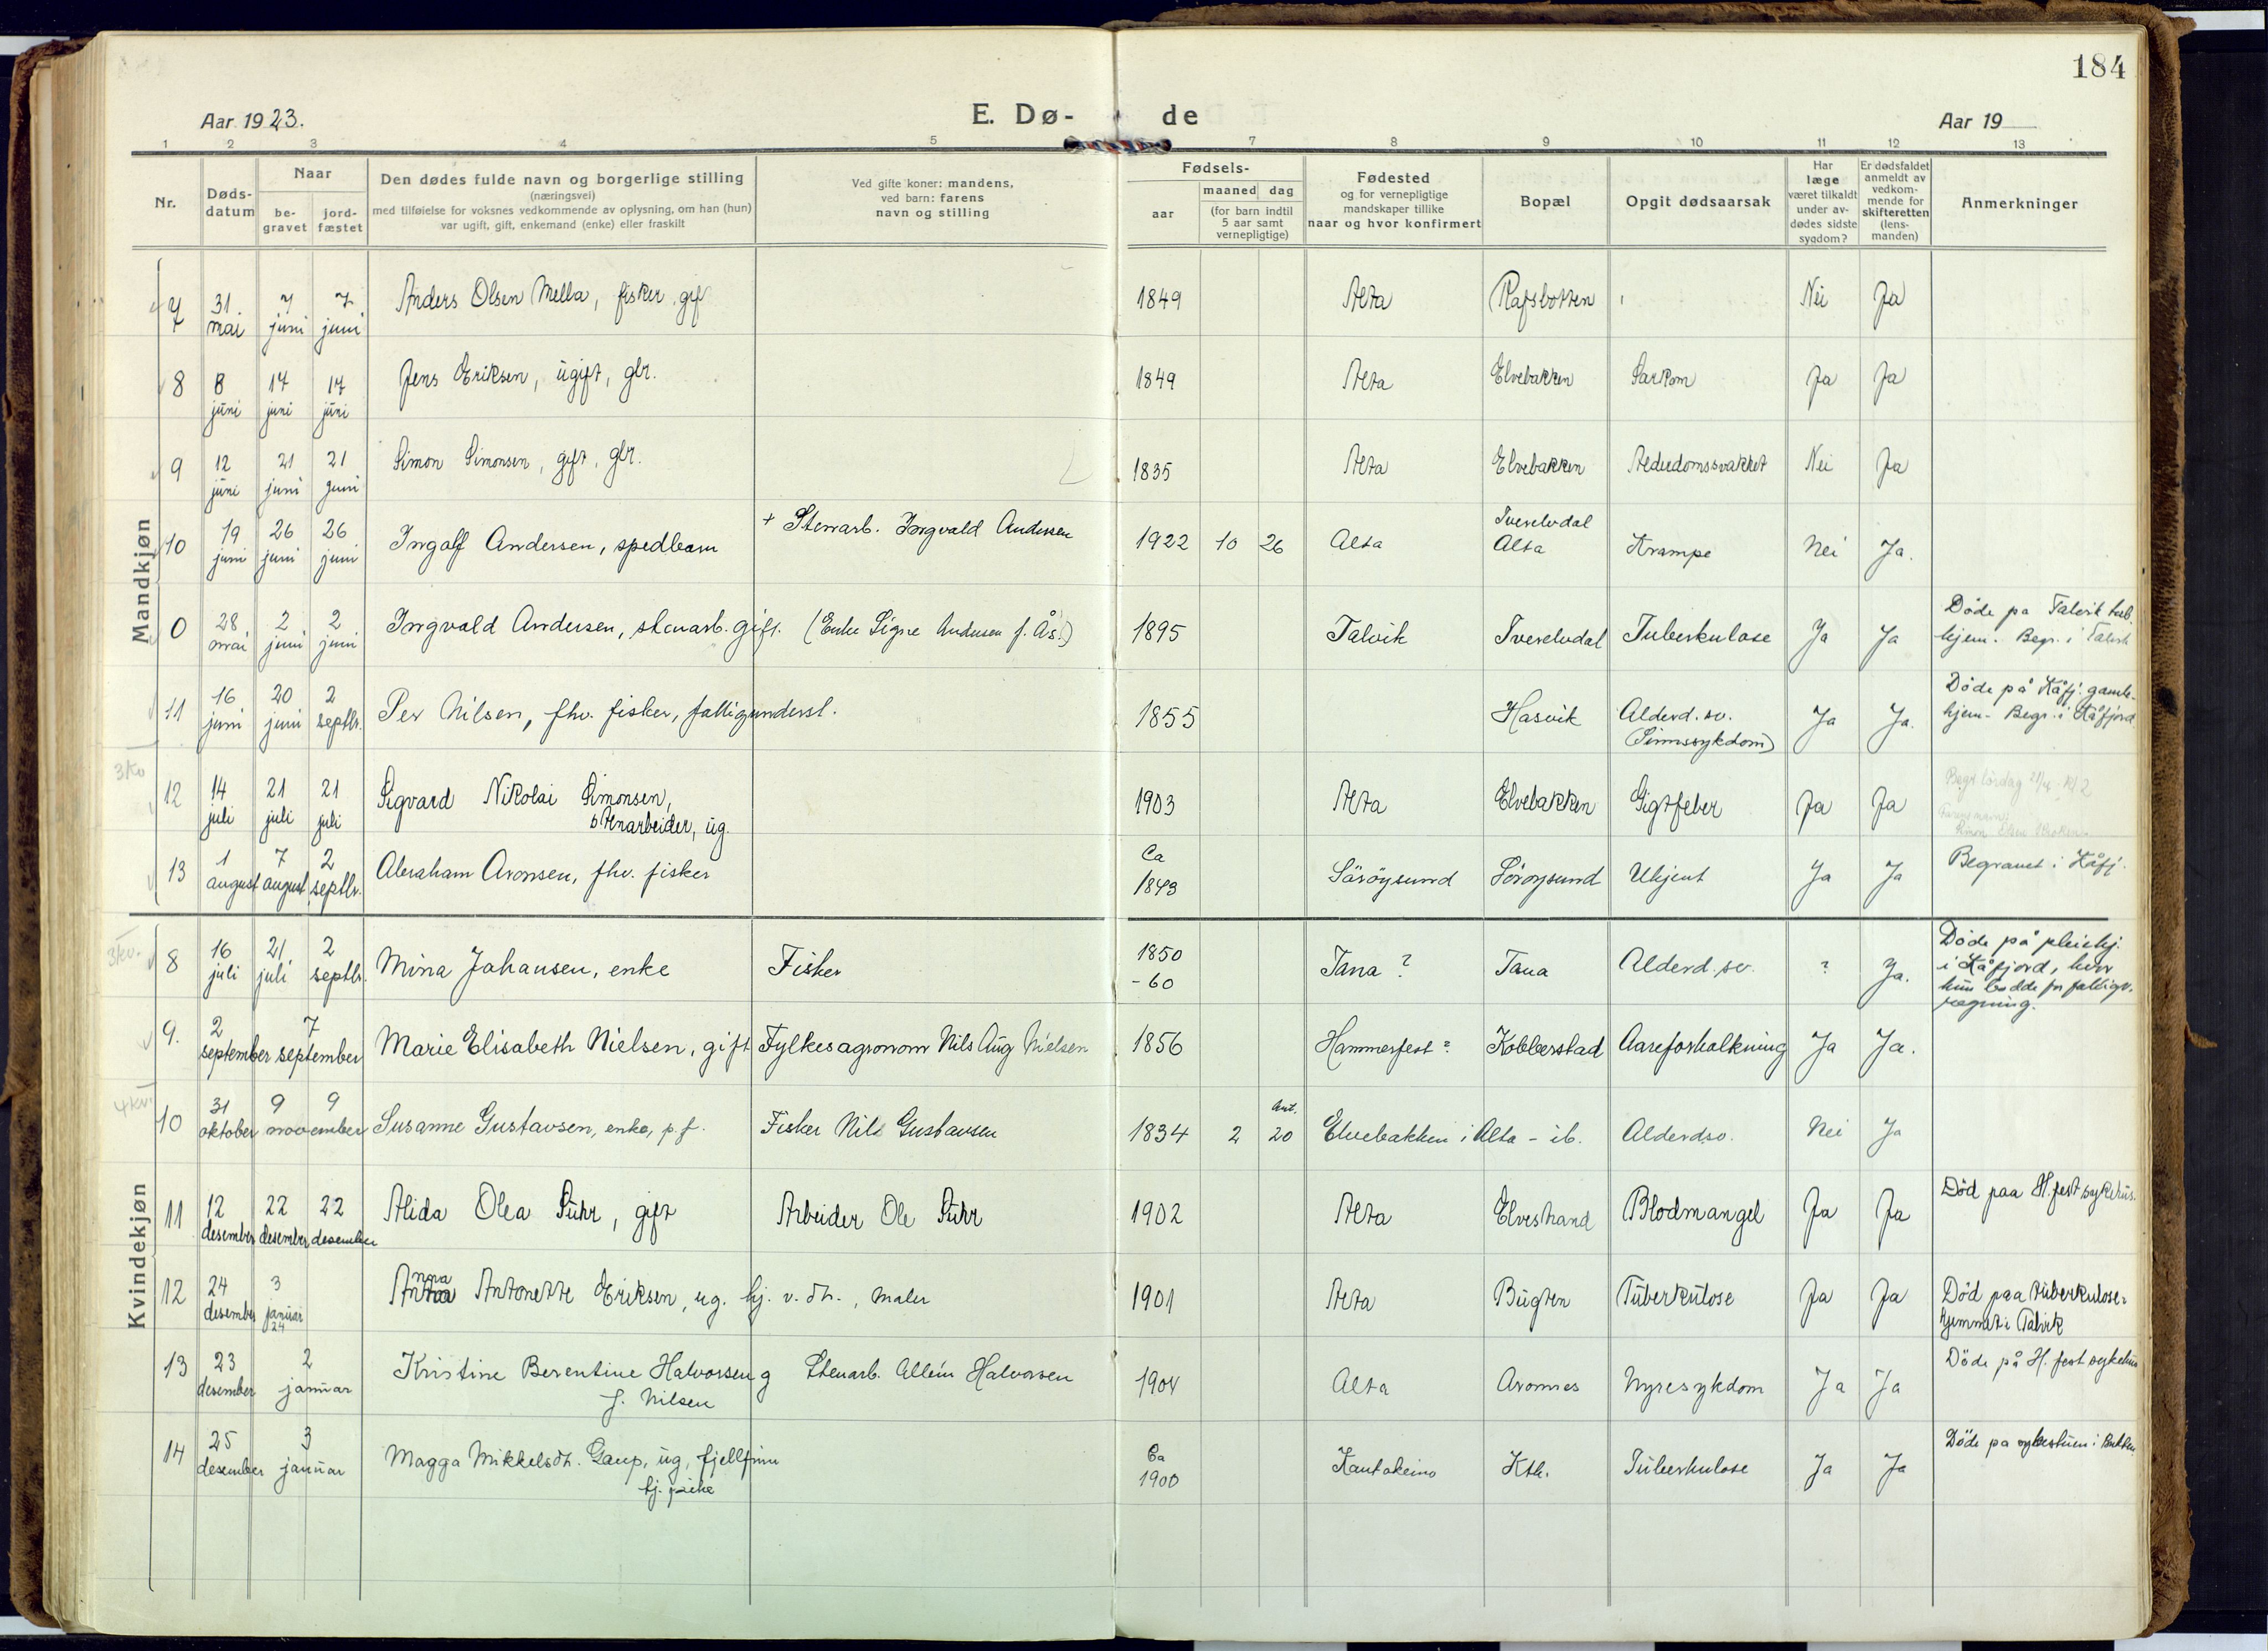 184
Aar 1923.
E. Dø-
de
Aar 19
1 2 3 4 5 7 8 9 10 11 12 13
Nr.
Døds-
datum
Naar
be-
gravet
jord-
fæstet
Den dødes fulde navn og borgerlige stilling
(næringsvei)
med tilføielse for voksnes vedkommende av oplysning, om han (hun)
var ugift, gift, enkemand (enke) eller fraskilt
Ved gifte koner: mandens,
ved barn: farens
navn og stilling
Fødsels-
aar
maaned dag
(for barn indtil
5 aar samt
vernepligtige)
Fødested
og for vernepligtige
mandskaper tillike
naar og hvor konfirmert
Bopæl
Opgit dødsaarsak
Har
læge
været tilkaldt
under av-
dødes sidste
sygdom?
Er dødsfaldet
anmeldt av
vedkom-
mende for
skifteretten
(lens-
manden)
Anmerkninger
Mandkjøn
7 31. mai 7 juni 7 juni Anders Olsen Mella, fisker, gif 1849 Alta Rafsbotten Nei Ja
8 8 juni 17 juni 17 juni Jens Eriksen, ugift, gbr. 1849 Alta Elvebakken Sarkom Ja Ja
9 12 juni 21 juni 21 juni Simon Simonsen, gift, gbr. 1835 Alta Elvebakken Alderdomssvakhet Nei Ja
10 19 juni 26 juni 26 juni Ingolf Andersen, spedbarn + Stenarb. Ingvald Andersen 1922 10 26 Alta Tverelvdal Alta Krampe Nei Ja.
0 28 mai 2 juni 2 juni Ingvald Andersen, stenarb. gift. (Enke Signe Andersen f. Ås.) 1895 Talvik Tverelvdal Tuberkulose Ja Ja Döde pa Talvik tub. hjem. Begr. i Talvik
11 16 juni 20 juni 2 septbr. Per Nilsen, fhv. fisker, fattigunderst. 1855 Hasvik Alderd. sv. (Sinnssykdom) Ja Ja. Döde på Kåfj. gamle- hjem - Begr. i Kåfjord
3 kv
12 14 juli 21 juli 21 juli Sigvard Nikolai Simonsen, stenarbeider, ug. 1903 Alta Elvebakken Gigtfeber Ja Ja Begr lördag 21/4 Kl 2
13 1 august 7 august 2 septbr. Abraham Aronsen, fhv. fisker Ca 1843 Söröysund Sörøysund Ukjent Ja Ja Begravet i Kåfj.
Kvindekjøn
3 kv.
8 16 juli 21 juli 2 septbr. Mina Johansen, enke Fisker 1850 - 60 Tana ? Tana Alderd. sv. ? Ja. Döde på pleiehj. i Kåfjord, hvor hun bodde for fattigv. regning.
9. 2 september 7 september Marie Elisabeth Nielsen, gift Fylkesagronom Nils Aug Nielsen 1856 Hammerfest ? Kobberstad Aareforkalkning Ja Ja.
4 kv.
10 31 oktober 9 9 november Susanne Gustavsen, enke, p.f. Fisker Nils Gustavsen 1834 2 ant. 20 Elvebakken i Alta - ib. Alderdsv. Nei Ja
11 12 desember 22 desember 22 desember Alida Olea Suhr, gift Arbeider Ole Suhr 1902 Alta Elvestrand Blodmangel Ja Ja Död paa H.fest sykehus.
12 24 desember 3 januar 24 Anna Antonette Eriksen, ug. hj. v. dtr., maler 1901 Alta Bugten Tuberkulose Ja Ja Død paa tuberkulose- hjemmet i Talvik
13 23 desember 2 januar Kristine Berentine Halvorsen g f. Nilsen Stenarb. Allein Halvorsen 1904 Alta Aronnes Nyresykdom Ja Ja Döde på H.fest sykehus
14 25 desember 3 januar Magga Mikkelsdtr. Gaup, ug, fjellfinn hj. pike Ca 1900 Kautokeino Ktk. Tuberkulose Ja Ja Döde pa sykestuen i